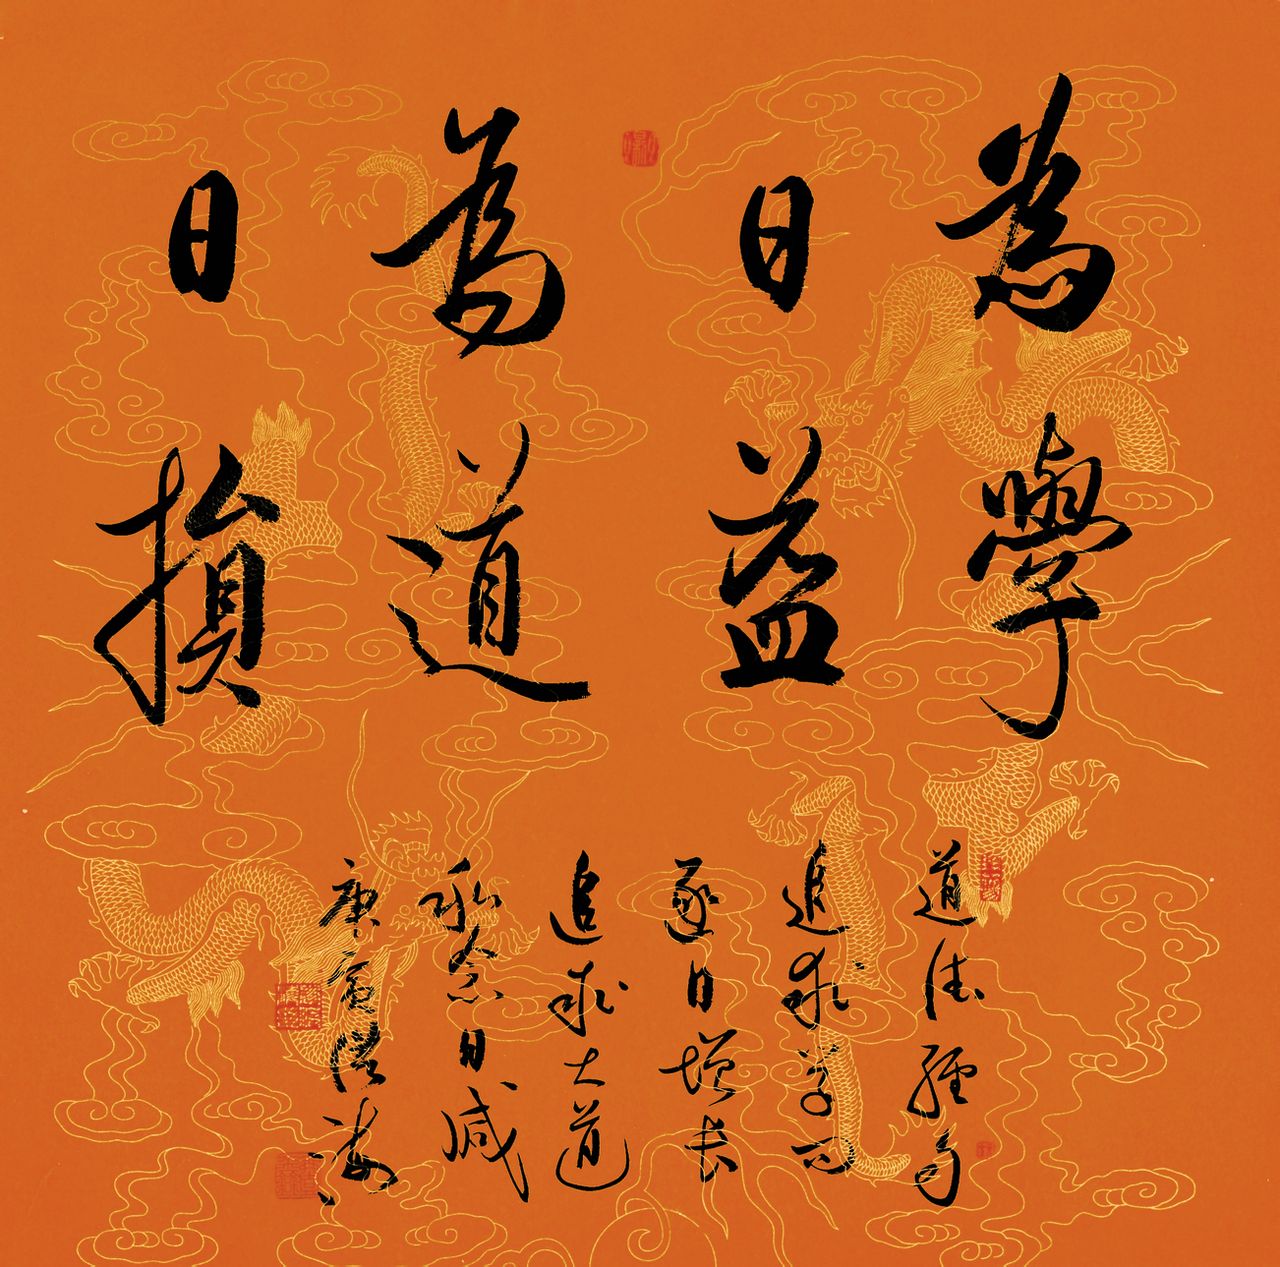 為學
日益
為道
日損
道德經句
追求学问
逐日增长
追求大道
私念日减
庚寅海